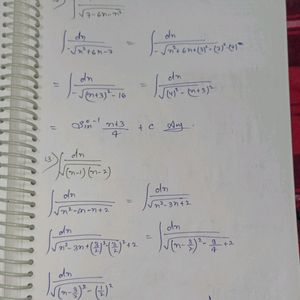 ∫ dx / √(7-6x-x²)
∫ dx / -√(x²+6x-7) ∫ dx / -√(x²+6x+(3)²-(3)²-(7)
= ∫ dx / -√((x+3)²-16) = ∫ dx / √((4)²-(x+3)²)
= Sin⁻¹ (x+3)/4 + c Ans
13) ∫ dx / √((x-1)(x-2))
∫ dx / √(x²-2x-x+2) = ∫ dx / √(x²-3x+2)
∫ dx / √(x²-3x+(3/2)²-(3/2)²+2) = ∫ dx / √((x-3/2)²-9/4+2)
∫ dx / √((x-3/2)²-(1/2)²)